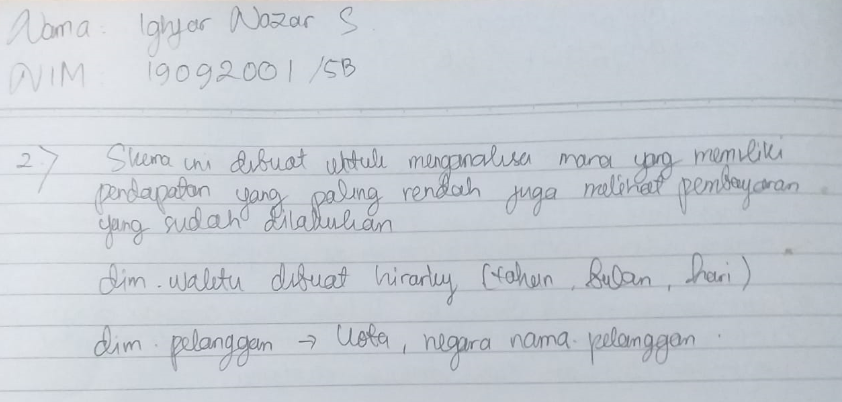 Nama: Ighfar Nazar S
NIM: 19092001/5B
2.) Skema ini dibuat untuk menganalisa mana yang memiliki
pendapatan yang paling rendah juga melihat pembayaran
yang sudah dilakukan
dim. waktu dibuat hirarky (tahun, bulan, hari)
dim. pelanggan → kota, negara nama. pelanggan.